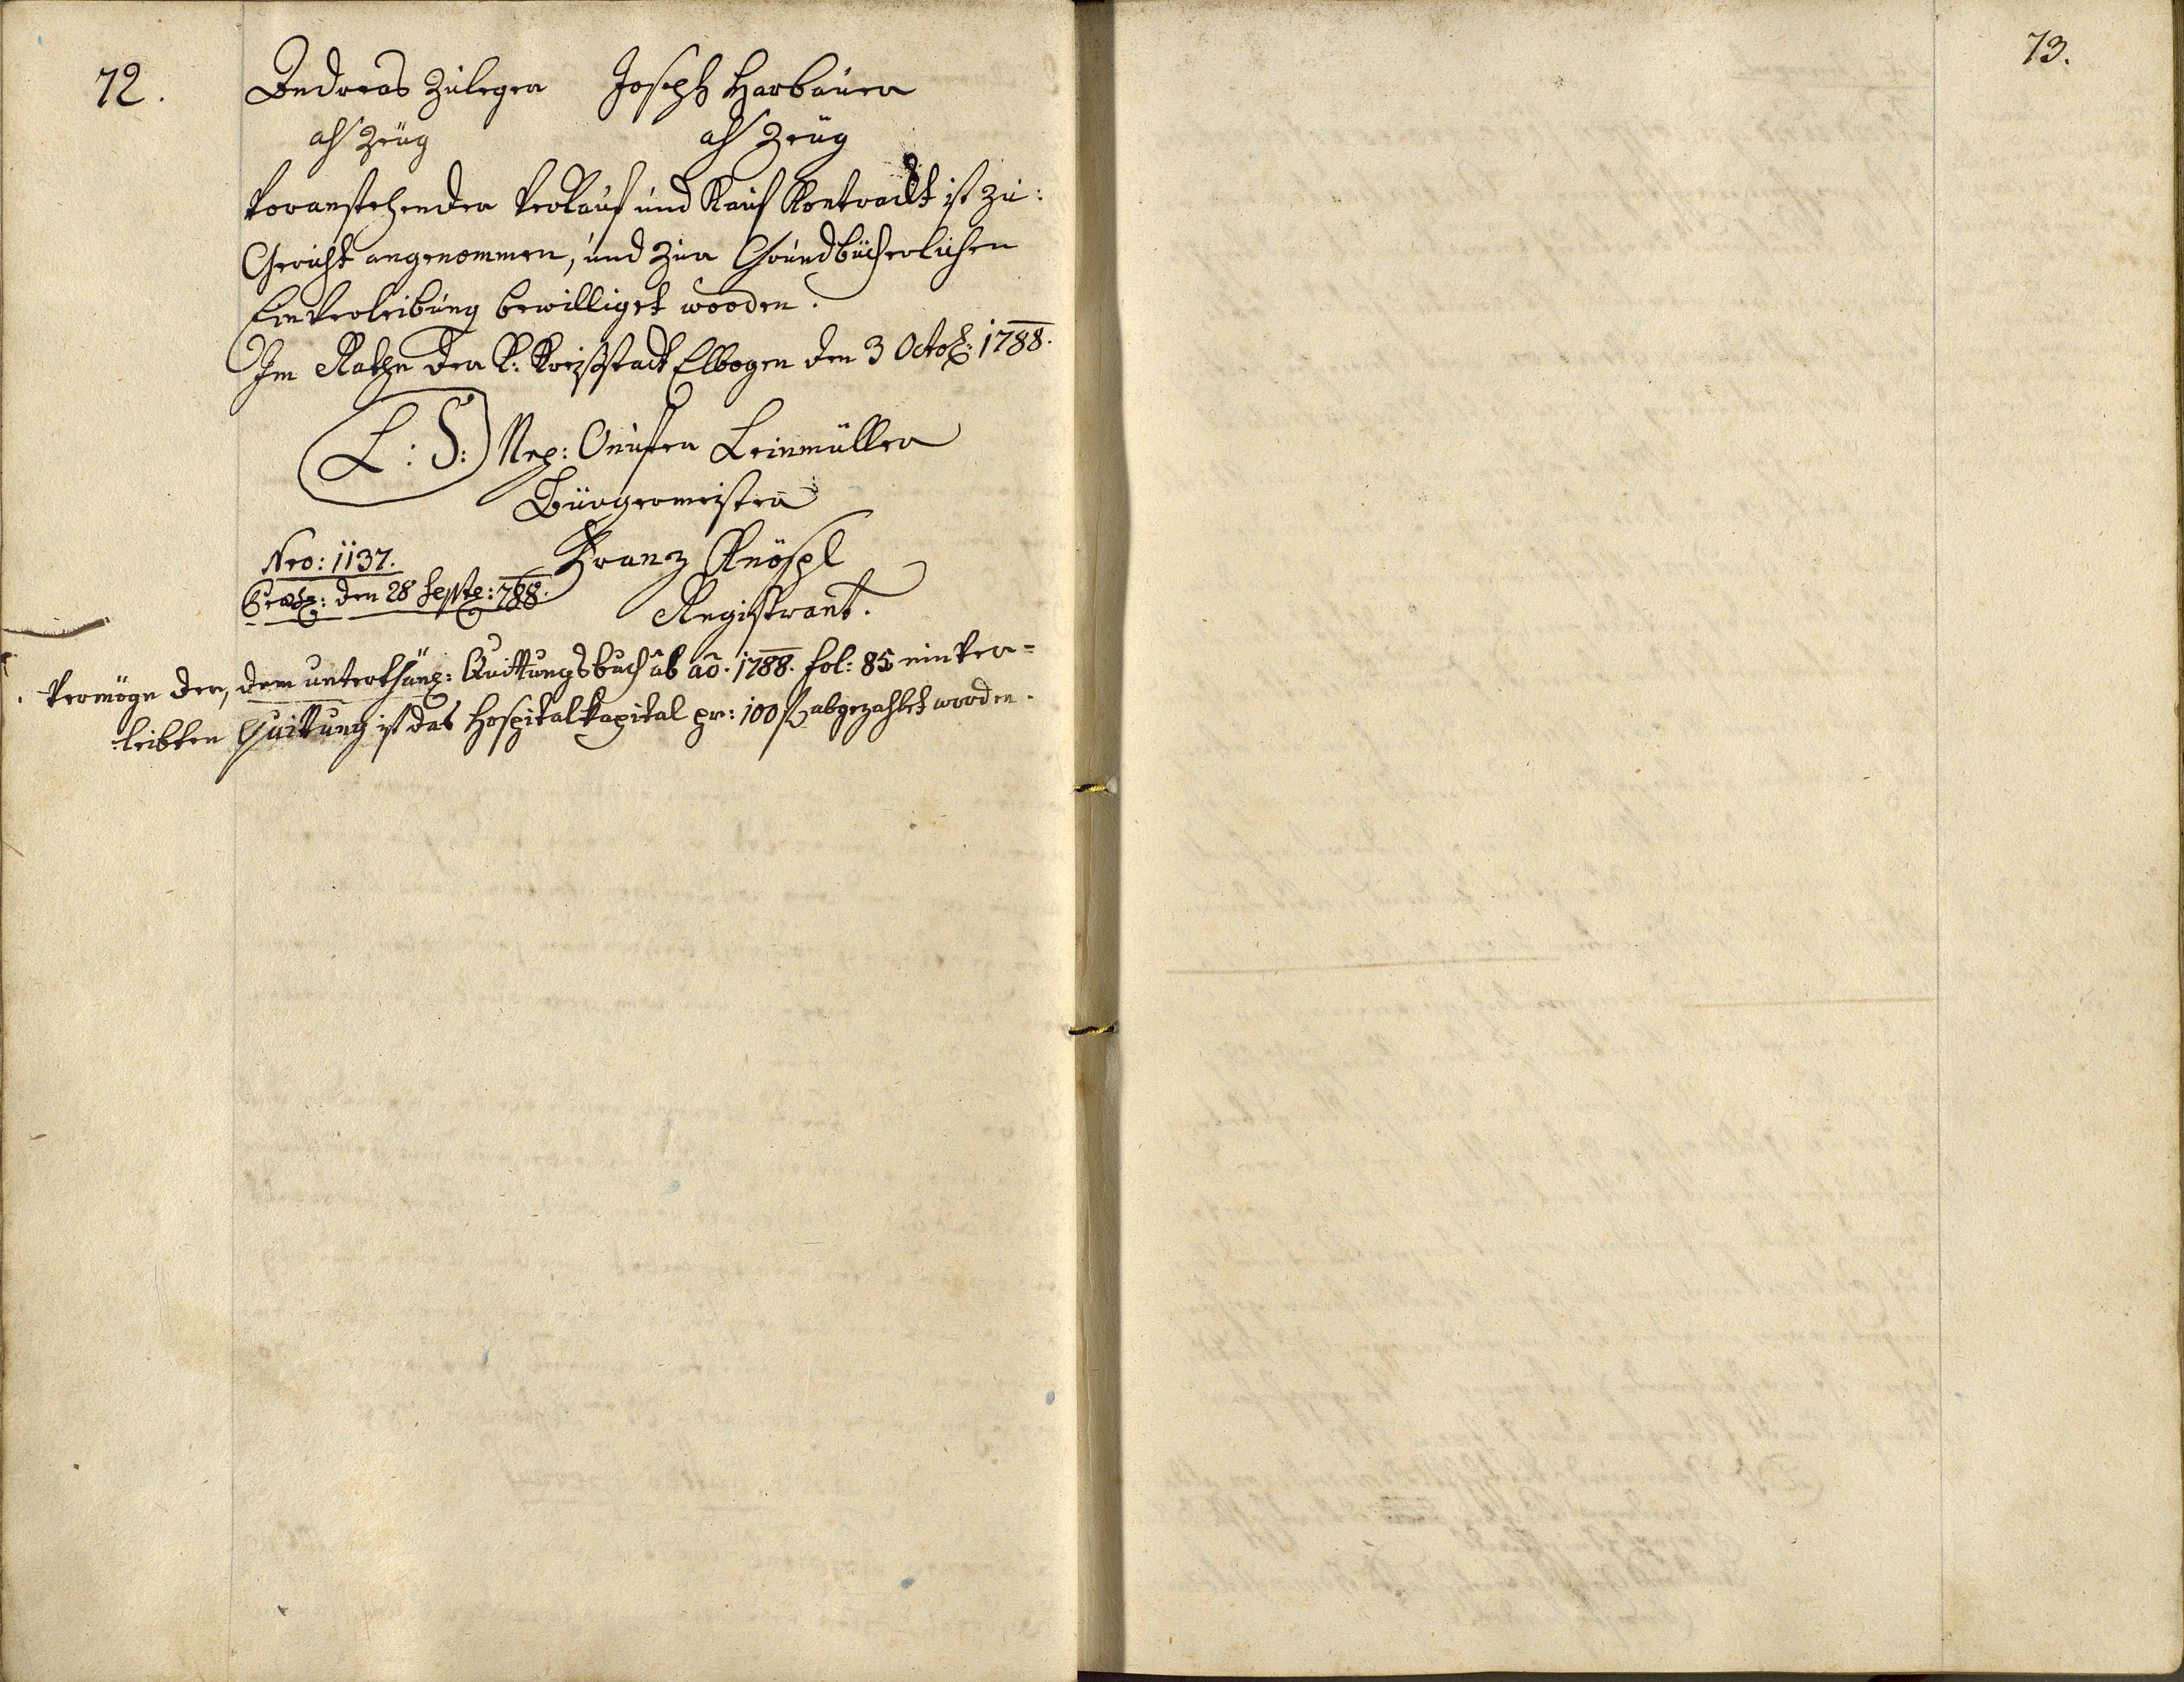 72.
Andreas Zuleger Joseph Harbauer
als Zeüg als Zeüg
Voranstehender Verkauf und Kauf Kontrackt ist zu:
Gericht angenommen, und zur Grundbücherlichen
Einverleibung bewilliget worden.
Im Rathe der K: Kreißstadt Elbogen den 3 Octob: 1788.
L: S: Nep: Leinmüller
Bürgermeister
Nro: 1137. Franz Knöspl
den 28 Septe: 788. Registrant.
Vermöge der, dem unterthänig: Quittungsbuch ab ao. 1788. fol: 85 einver=
leibten Quittung ist das Hospitalkapital pr: 100 f abgezahlet worden.
73.